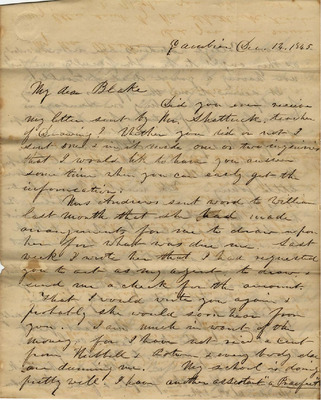 Gambier Dec. 12, 1845.
My dear Blake
Did you ever receive
my letter sent by Mr. Shattuck, teacher
of drawing? Whether you did or not I
sent one & in it made one or two inquiries
that I would like to have you answer
some time when you can easily get the
information.
Mrs Andrews sent word to William
last month that she had made
arrangements for me to draw upon
her for what was due me. Last
week I wrote her that I had requested
you to act as my agent to draw &
send me a check for the amount.
That I would write you again &
probably she would soon hear from
you. I am much in want of the
money, for I have not rec'd a cent
from Hubbell & & every body else
are dunning me. My school is doing
pretty well, I have another assistant a